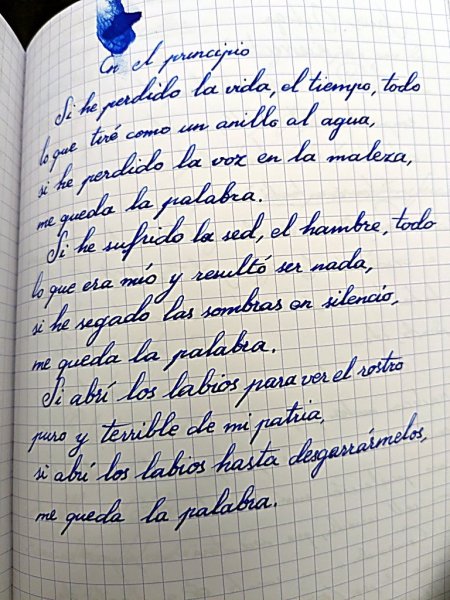 En el principio
Si he perdido la vida, el tiempo, todo
lo que tiré como un anillo al agua,
si he perdido la voz en la maleza,
me queda la palabra.
Si he sufrido la sed, el hambre, todo
lo que era mío y resultó ser nada,
si he segado las sombras en silencio,
me queda la palabra.
Si abrí los labios para ver el rostro
puro y terrible de mi patria,
si abrí los labios hasta desgarrármelos,
me queda la palabra.